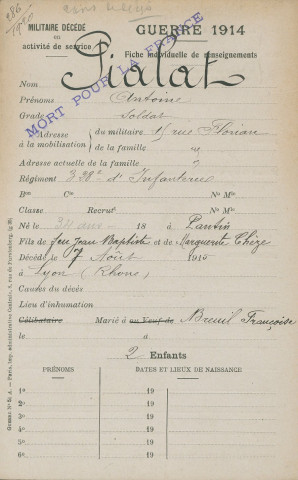 286/1920
MILITAIRE DÉCÉDÉ
en
activité de service
GUERRE 1914
Fiche individuelle de renseignements
MORT POUR LA FRANCE
Nom Pialat
Prénoms Antoine
Grade Soldat
Adresse à la mobilisation du militaire 15 rue Florian
de la famille "
Adresse actuelle de la famille "
Régiment 328e d'Infanterie
Bon Cie No Mle
Classe Recrut No Mle
Né le 34 ans 18 à Pantin
Fils de feu Jean Baptiste et de Marguerite Chèze
Décédé le 7 Août 1915
à Lyon (Rhône)
Causes du décès
Lieu d'inhumation
Célibataire Marié à ou Veuf de Breuil Françoise
le à
2 Enfants
PRÉNOMS DATES ET LIEUX DE NAISSANCE
1o 19
2o 19
3o 19
4o 19
5o 19
6o 19